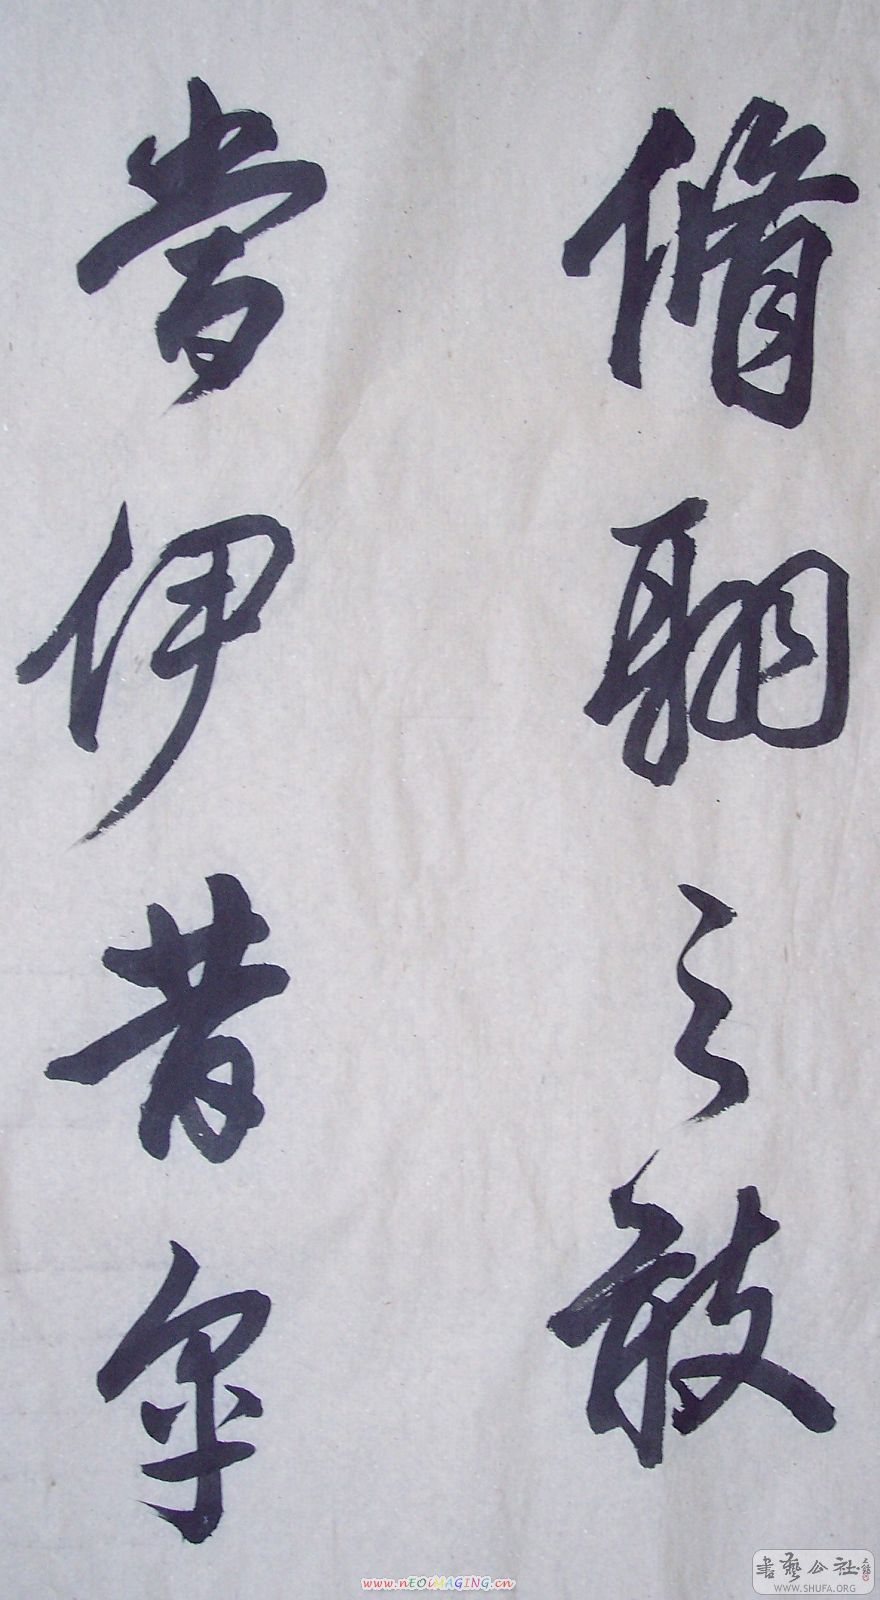 脩翮之敢
當伊昔
www.nEOiMAGING.cn
書藝公社
WWW.SHUFA.ORG